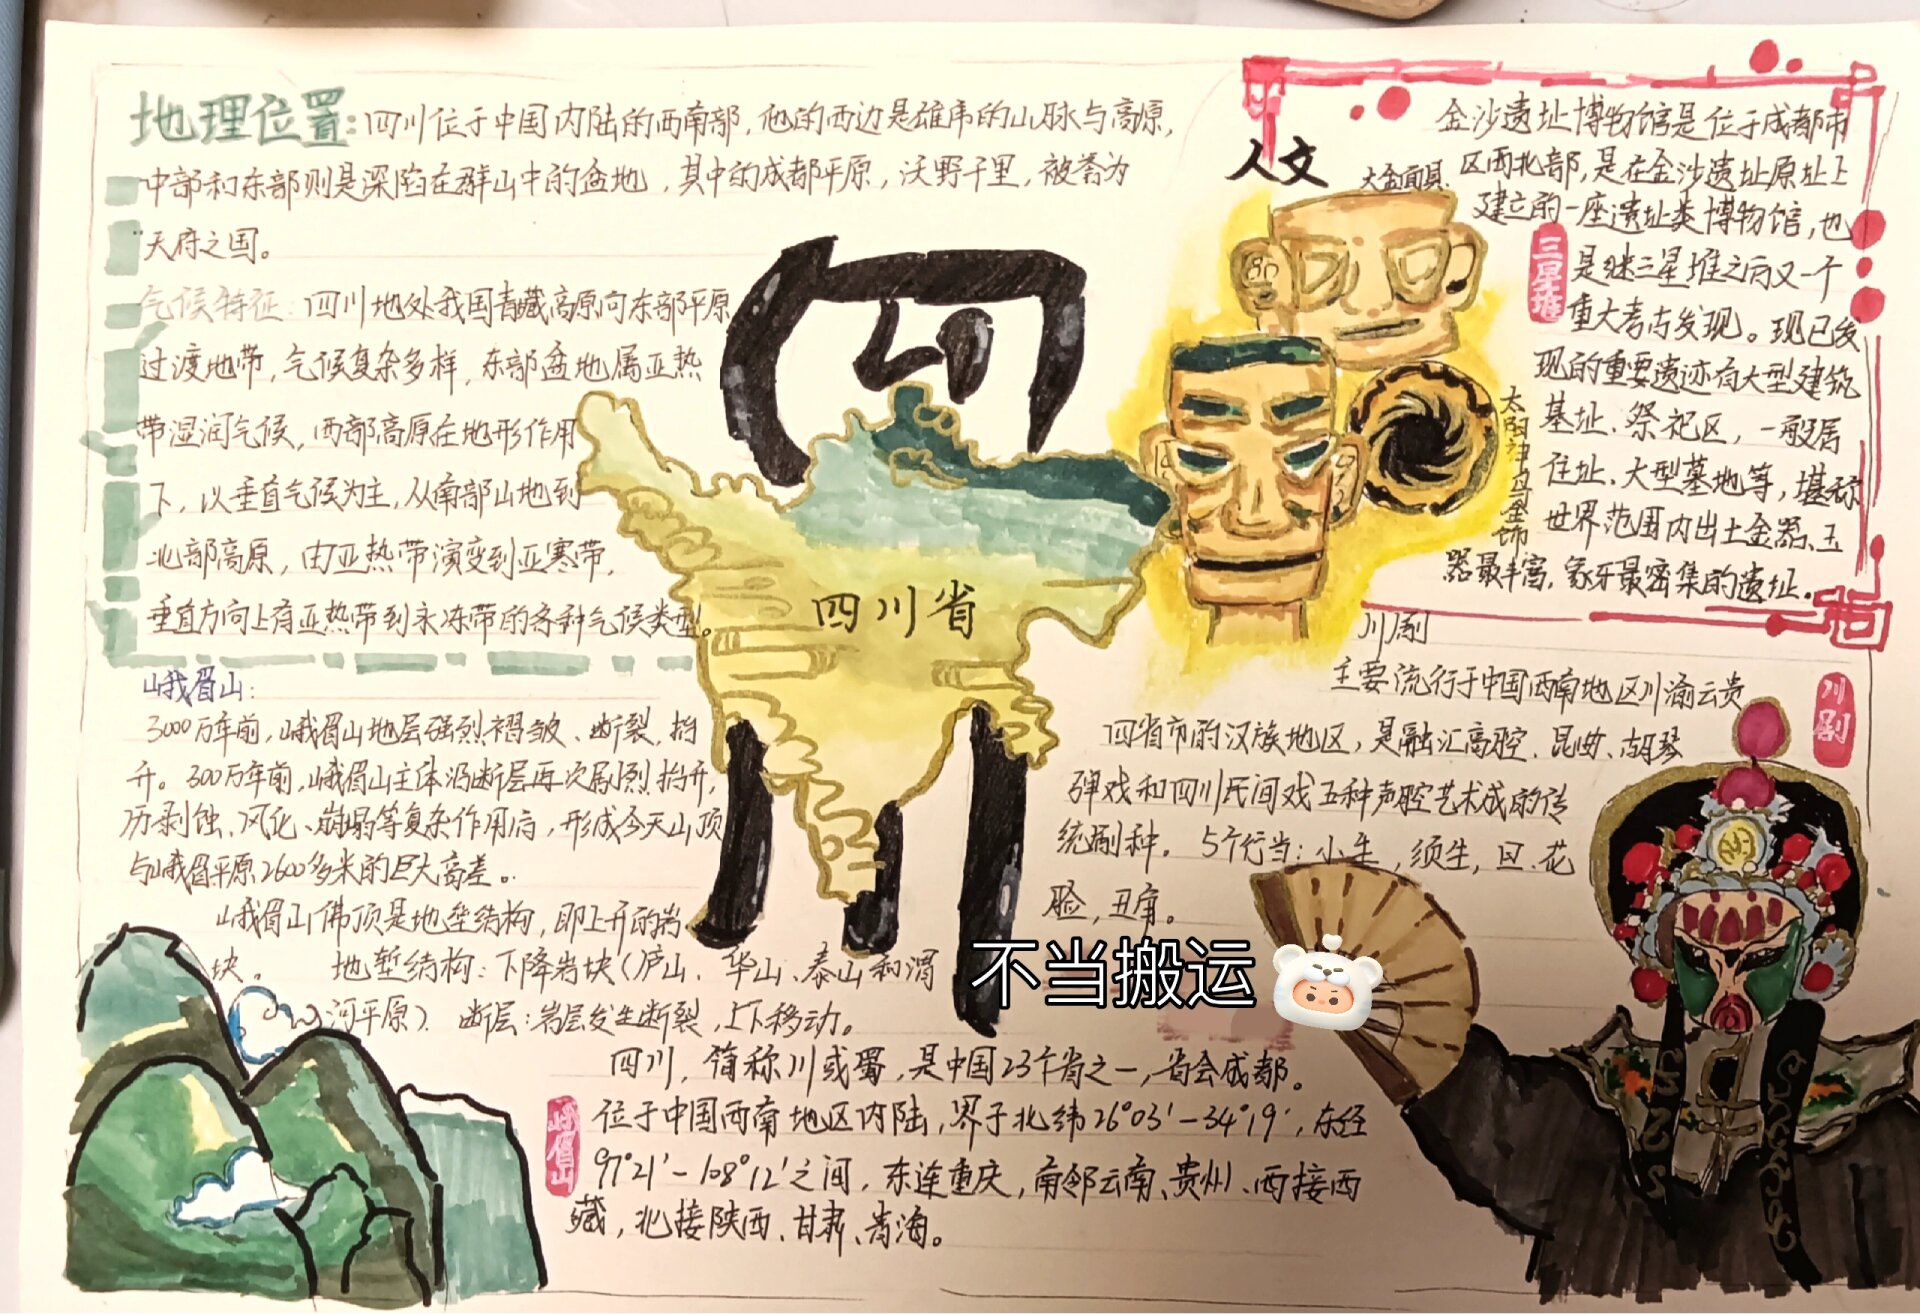 地理位置：四川位于中国内陆的西南部，他的西边是雄伟的山脉与高原，
中部和东部则是深陷在群山中的盆地，其中的成都平原，沃野千里，被誉为
天府之国。
气候特征：四川地处我国青藏高原向东部平原
过渡地带，气候复杂多样，东部盆地属亚热
带湿润气候，西部高原在地形作用
下，以垂直气候为主，从南部山地到
北部高原，由亚热带演变到亚寒带，
垂直方向上有亚热带到永冻带的各种气候类型。
峨眉山：
3000万年前，峨眉山地层强烈褶皱、断裂，抬
升。300万年前，峨眉山主体沿断层再次剧烈抬升，
历剥蚀、风化、崩塌等复杂作用后，形成今天山顶
与峨眉平原2600多米的巨大高差。
峨眉山佛顶是地垒结构，即上升的岩
块。 地堑结构：下降岩块（庐山、华山、泰山和渭
河平原） 断层：岩层发生断裂，上下移动。
四川
四川省
人文
大金面具
金沙遗址博物馆是位于成都市
区西北部，是在金沙遗址原址上
建立的一座遗址类博物馆，也
是继三星堆之后又一个
重大考古发现。现已发
现的重要遗迹有大型建筑
基址、祭祀区，一般居
住址、大型墓地等，堪称
世界范围内出土金器、玉
器最丰富，象牙最密集的遗址。
三星堆
太阳神鸟金饰
川剧
主要流行于中国西南地区川渝云贵
四省市的汉族地区，是融汇高腔、昆曲、胡琴
弹戏和四川民间戏五种声腔艺术成的传
统剧种。 5个行当：小生，须生，旦、花
脸，丑角。
川剧
不当搬运
四川，简称川或蜀，是中国23个省之一，省会成都。
位于中国西南地区内陆，界于北纬26°03′-34°19′，东经
97°21′-108°12′之间，东连重庆，南邻云南、贵州、西接西
藏，北接陕西、甘肃、青海。
峨眉山